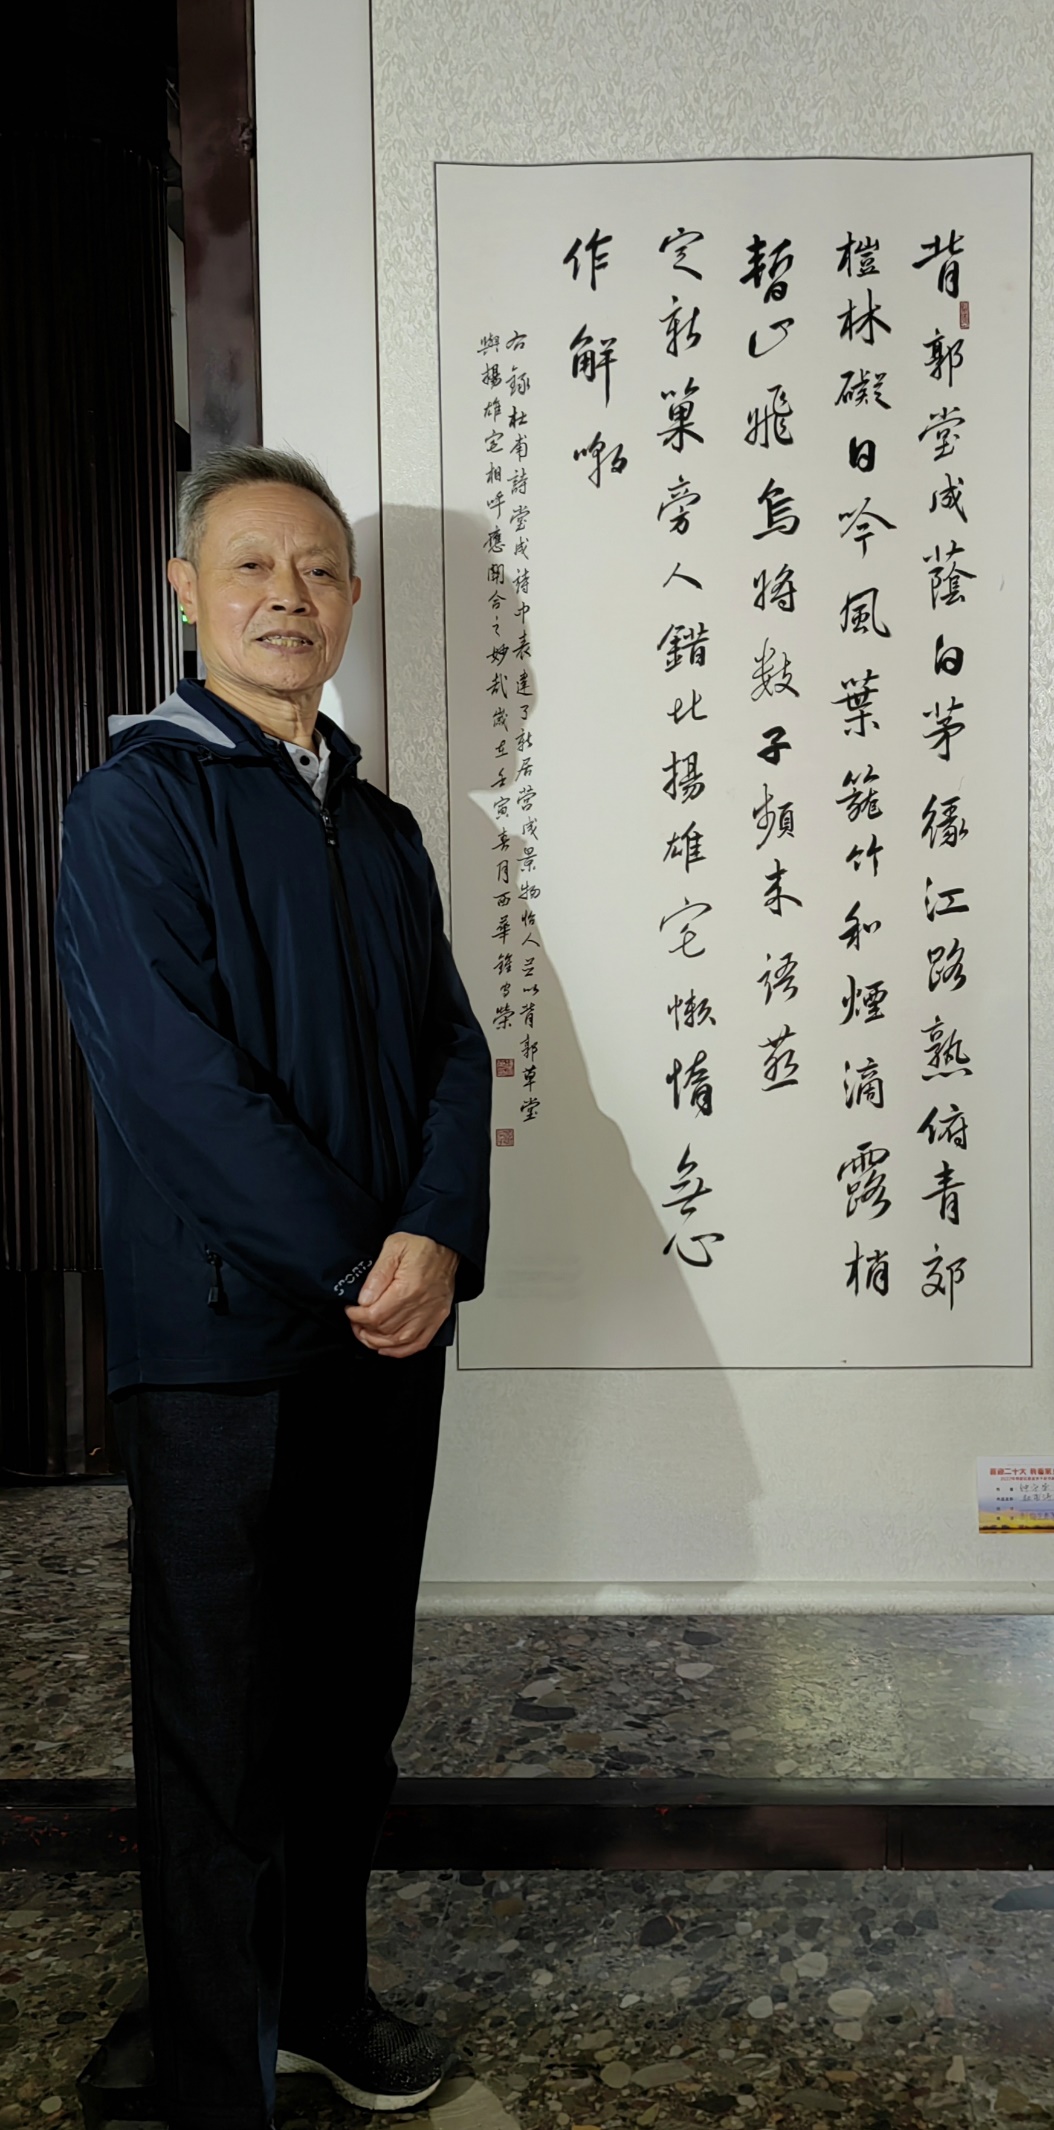 背郭堂成蔭白茅緣江路熟俯青郊
榿林礙日吟風葉籠竹和煙滴露梢
暫止飛烏將數子頻來語燕
定新巢旁人錯比揚雄宅懶惰無心
作解嘲
右錄杜甫詩堂成詩中表達了新居營成景物怡人并以背郭草堂
與揚雄宅相呼應開合之妙哉歲在壬寅春月西華鍾守榮
喜迎二十大